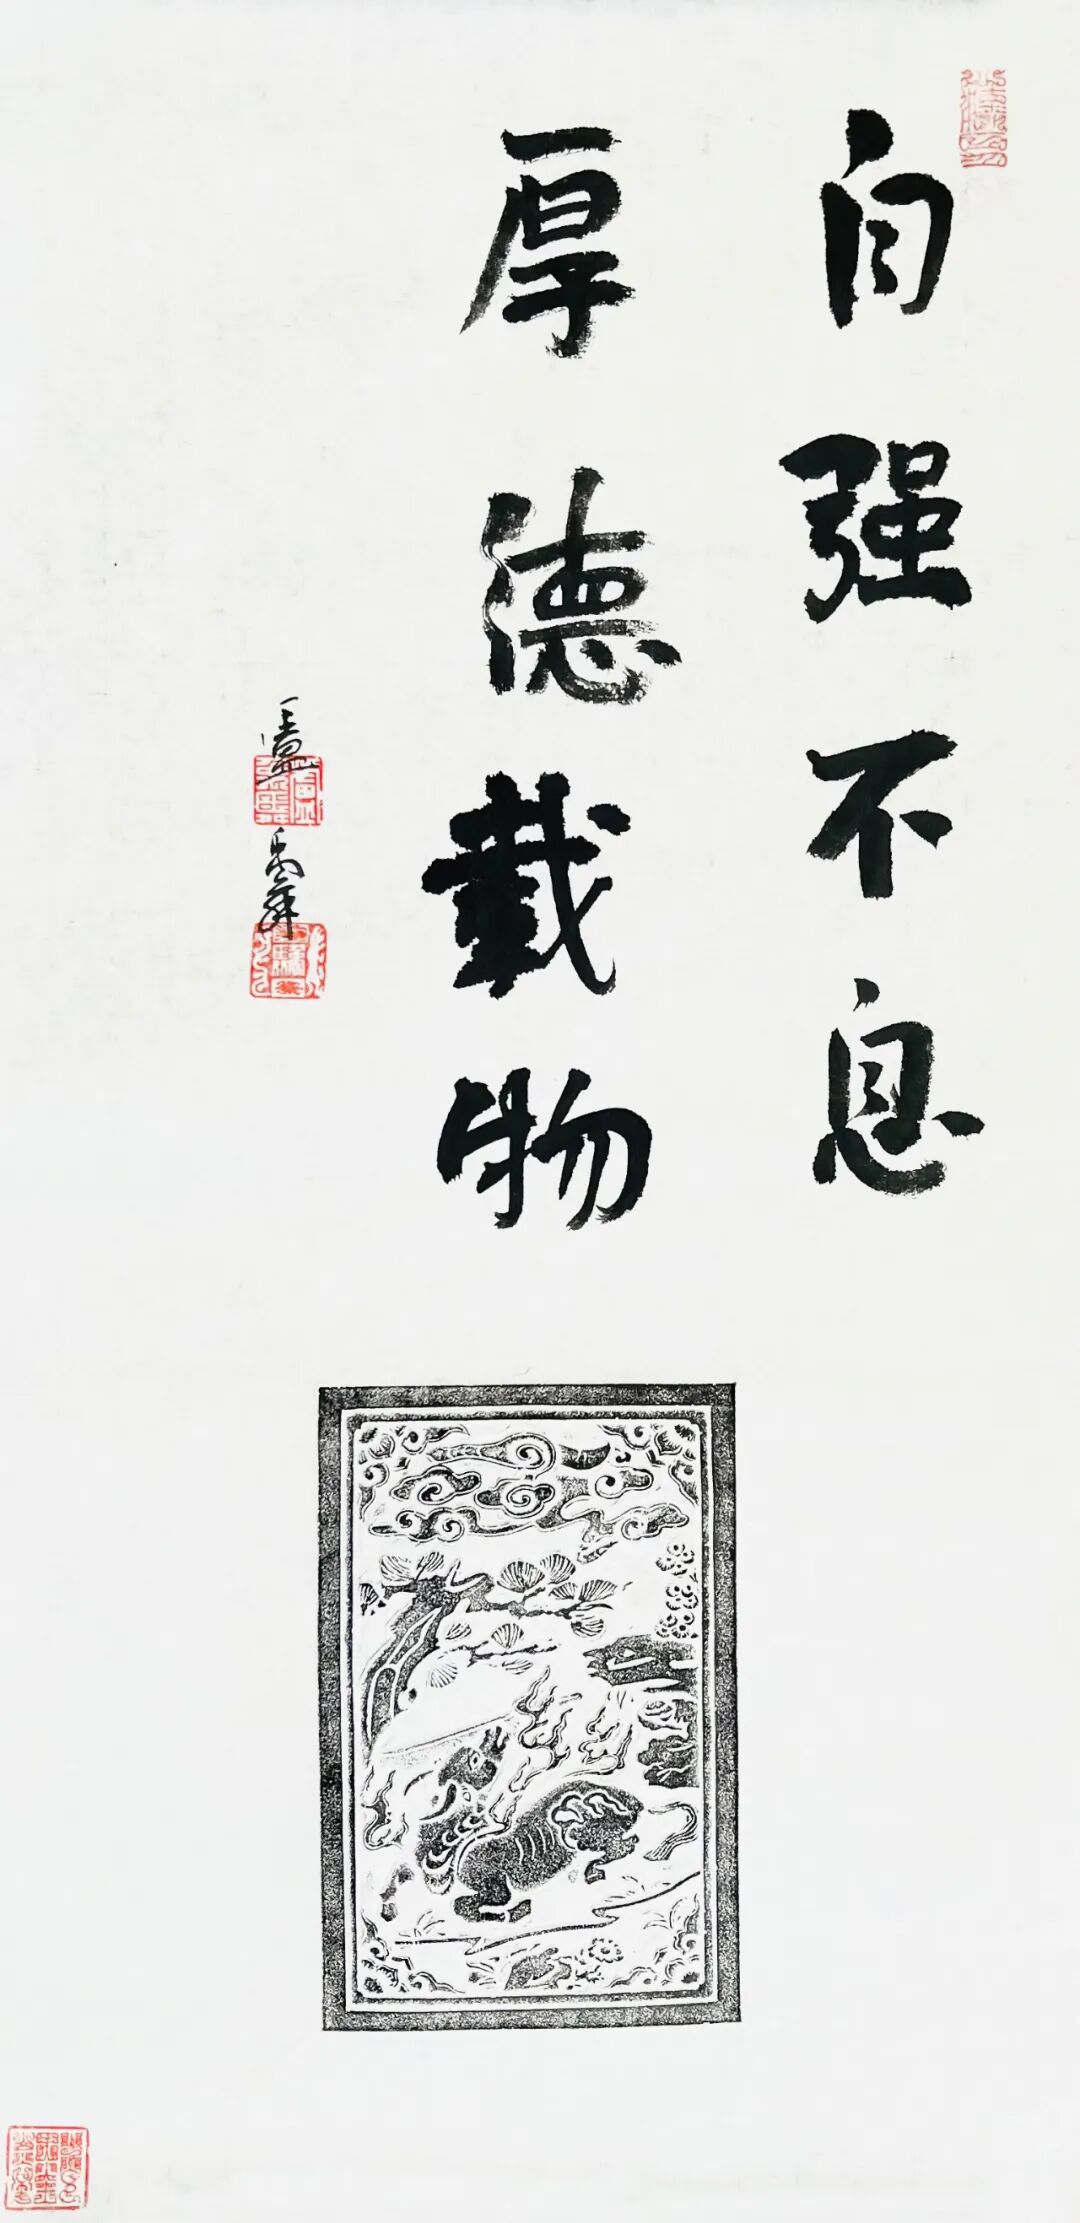 自强不息
厚德载物